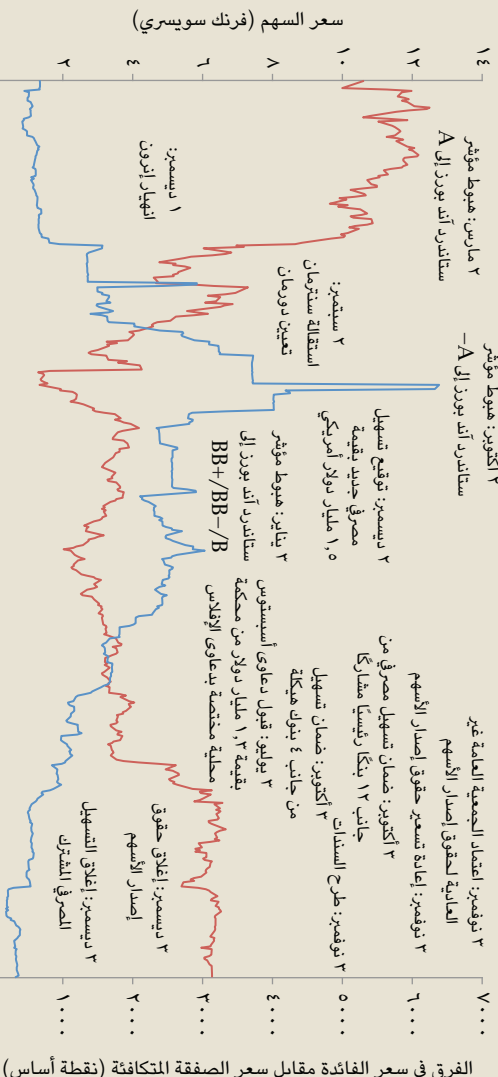 سعر السهم (فرنك سويسري)
٢
٤
٦
٨
١٠
١٢
١٤
٢ مارس: هبوط مؤشر
ستاندرد آند بورز إلى A
١ ديسمبر:
انهيار إنرون
٢ سبتمبر:
استقالة سنترمان
تعيين دورمان
٢ أكتوبر: هبوط مؤشر
ستاندرد آند بورز إلى A−
٢ ديسمبر: توقيع تسهيل
مصرفي جديد بقيمة
١,٥ مليار دولار أمريكي
٣ يناير: هبوط مؤشر
ستاندرد آند بورز إلى
BB+/BB−/B
٣ يوليو: قبول دعاوى أسبستوس
بقيمة ١,٣ مليار دولار من محكمة
محلية مختصة بدعاوى الإفلاس
٣ أكتوبر: ضمان تسهيل
من جانب ٤ بنوك هيكلة
٣ أكتوبر: ضمان تسهيل مصرفي من
جانب ١٢ بنكًا رئيسيًا مشاركًا
٣ نوفمبر: إعادة تسعير حقوق إصدار الأسهم
٣ نوفمبر: اعتماد الجمعية العامة غير
العادية لحقوق إصدار الأسهم
٣ نوفمبر: طرح السندات
٣ ديسمبر: إغلاق حقوق
إصدار الأسهم
٣ ديسمبر: إغلاق التسهيل
المصرفي المشترك
١٠٠٠
٢٠٠٠
٣٠٠٠
٤٠٠٠
٥٠٠٠
٦٠٠٠
٧٠٠٠
الفرق في سعر الفائدة مقابل سعر الصفقة المتكافئة (نقطة أساس)